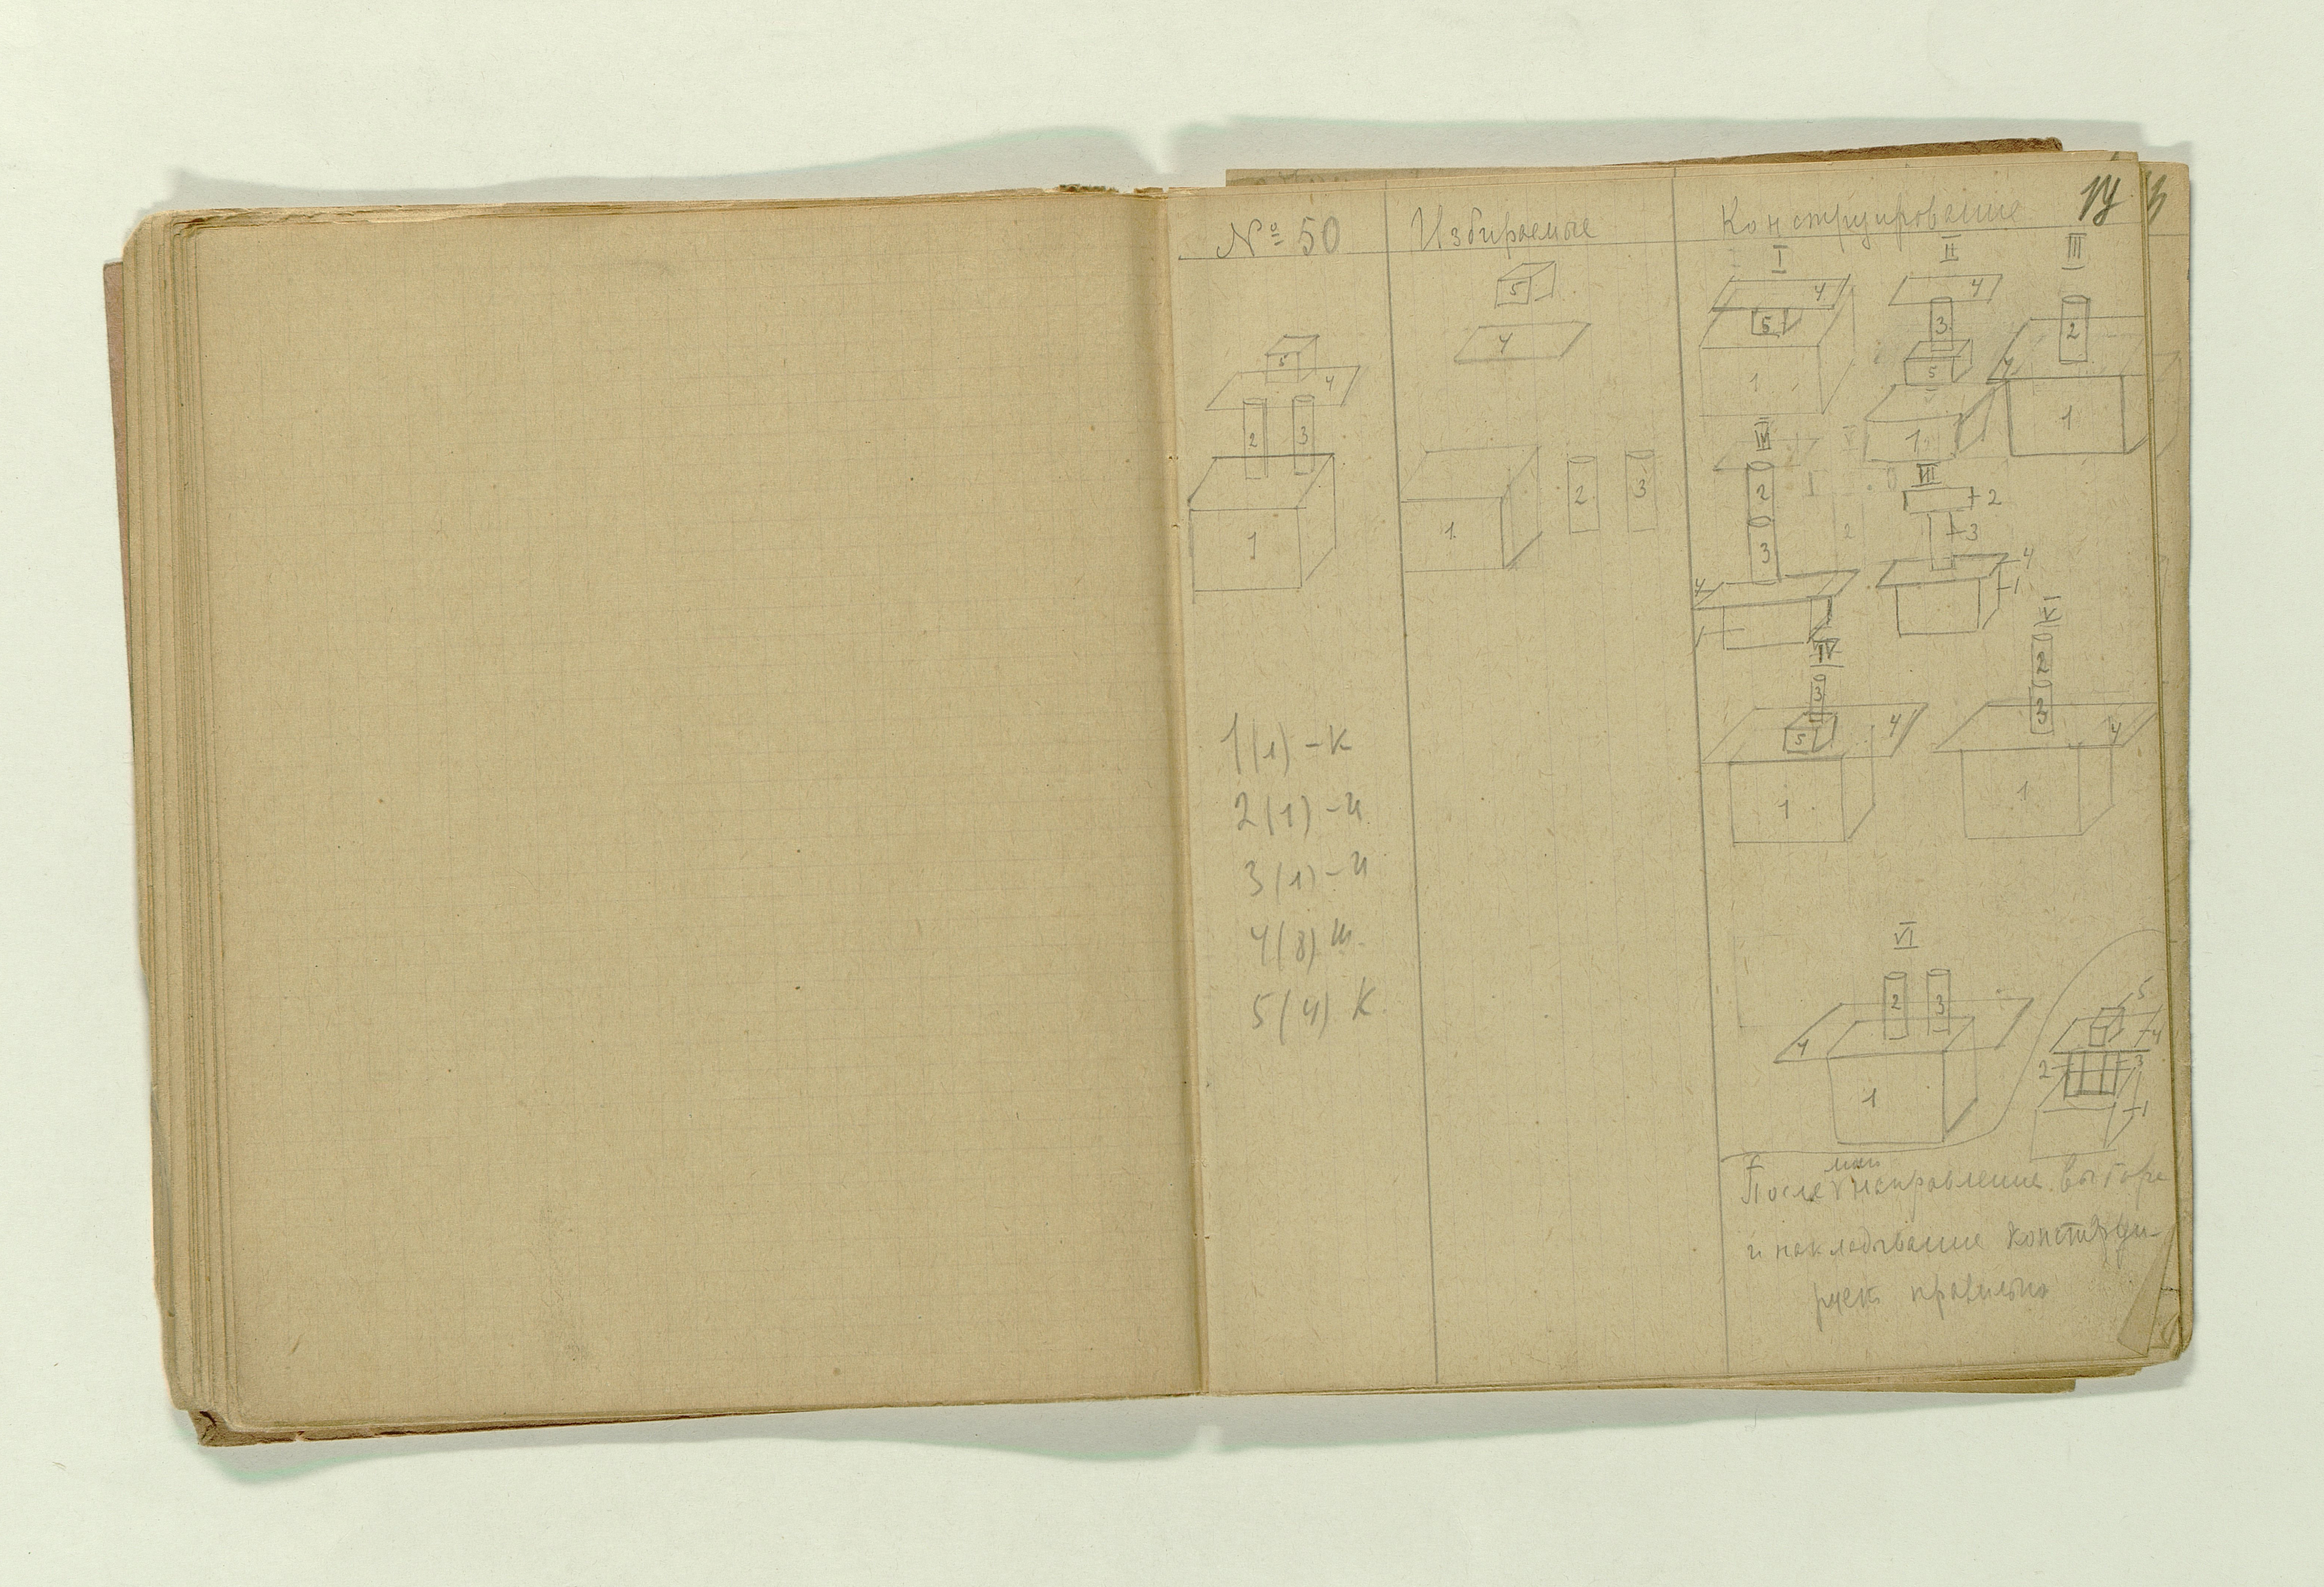 № 50
Избираемые
Конструирование
14
I
II
III
5
4
1
2
3
5
4
1
2
3
4
5
1
4
3
5
1
2
4
1
2
3
4
III
2
3
4
1
IV
3
5
4
1
V
2
3
4
1
1(1) – К
2(1) – и
3(1) – и
4(8) ш
5(4) К
VI
2
3
4
1
5
4
2
3
1
После направление выбора
и накладывание конструи-
рует правильно